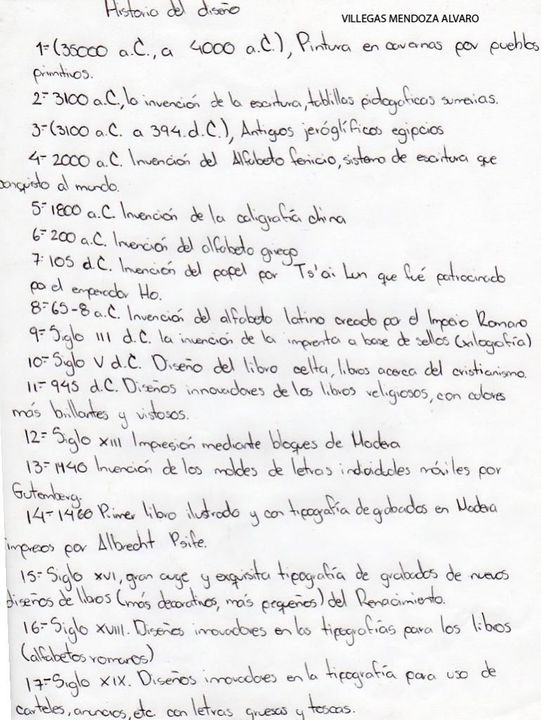 Historia del diseño
VILLEGAS MENDOZA ALVARO
1-(35000 a.C., a 4000 a.C.), Pintura en cavernas por pueblos
primitivos.
2- 3100 a.C, la invención de la escritura, tablillas pictograficas sumerias.
3-(3100 a.C. a 394. d.C.), Antiguos jeróglíficos egipcios
4- 2000 a.C. Invención del Alfabeto fenicio, sistema de escritura que
conquisto al mundo.
5- 1800 a.C. Invención de la caligrafía china
6- 200 a.C. Invención del alfabeto griego
7- 105 d.C. Invención del papel por Ts'ai Lun que fué patrocinado
por el emperador Ho.
8- 65-8 a.C. Invención del alfabeto latino creado por el Imperio Romano
9- Siglo III d.C. la invención de la imprenta a base de sellos (xilografía)
10- Siglo V d.C. Diseño del libro celta, libros acerca del cristianismo.
11- 945 d.C. Diseños innovadores de los libros religiosos, con colores
más brillantes y vistosos.
12- Siglo XIII Impresión mediante bloques de Madera
13- 1440 Invención de los moldes de letras individules móviles por
Gutemberg.
14- 1460 Primer libro ilustrado y con tipografía de grabados en Madera
impresos por Albrecht Psife.
15- Siglo XVI, gran auge y exquisita tipografía de grabados de nuevos
diseños de libros (más decorativos, más pequeños) del Renacimiento.
16- Siglo XVIII. Diseños innovadores en las tipografías para los libros
(alfabetos romanos)
17- Siglo XIX. Diseños innovadores en la tipografía para uso de
carteles, anuncios, etc. con letras gruesas y toscas.